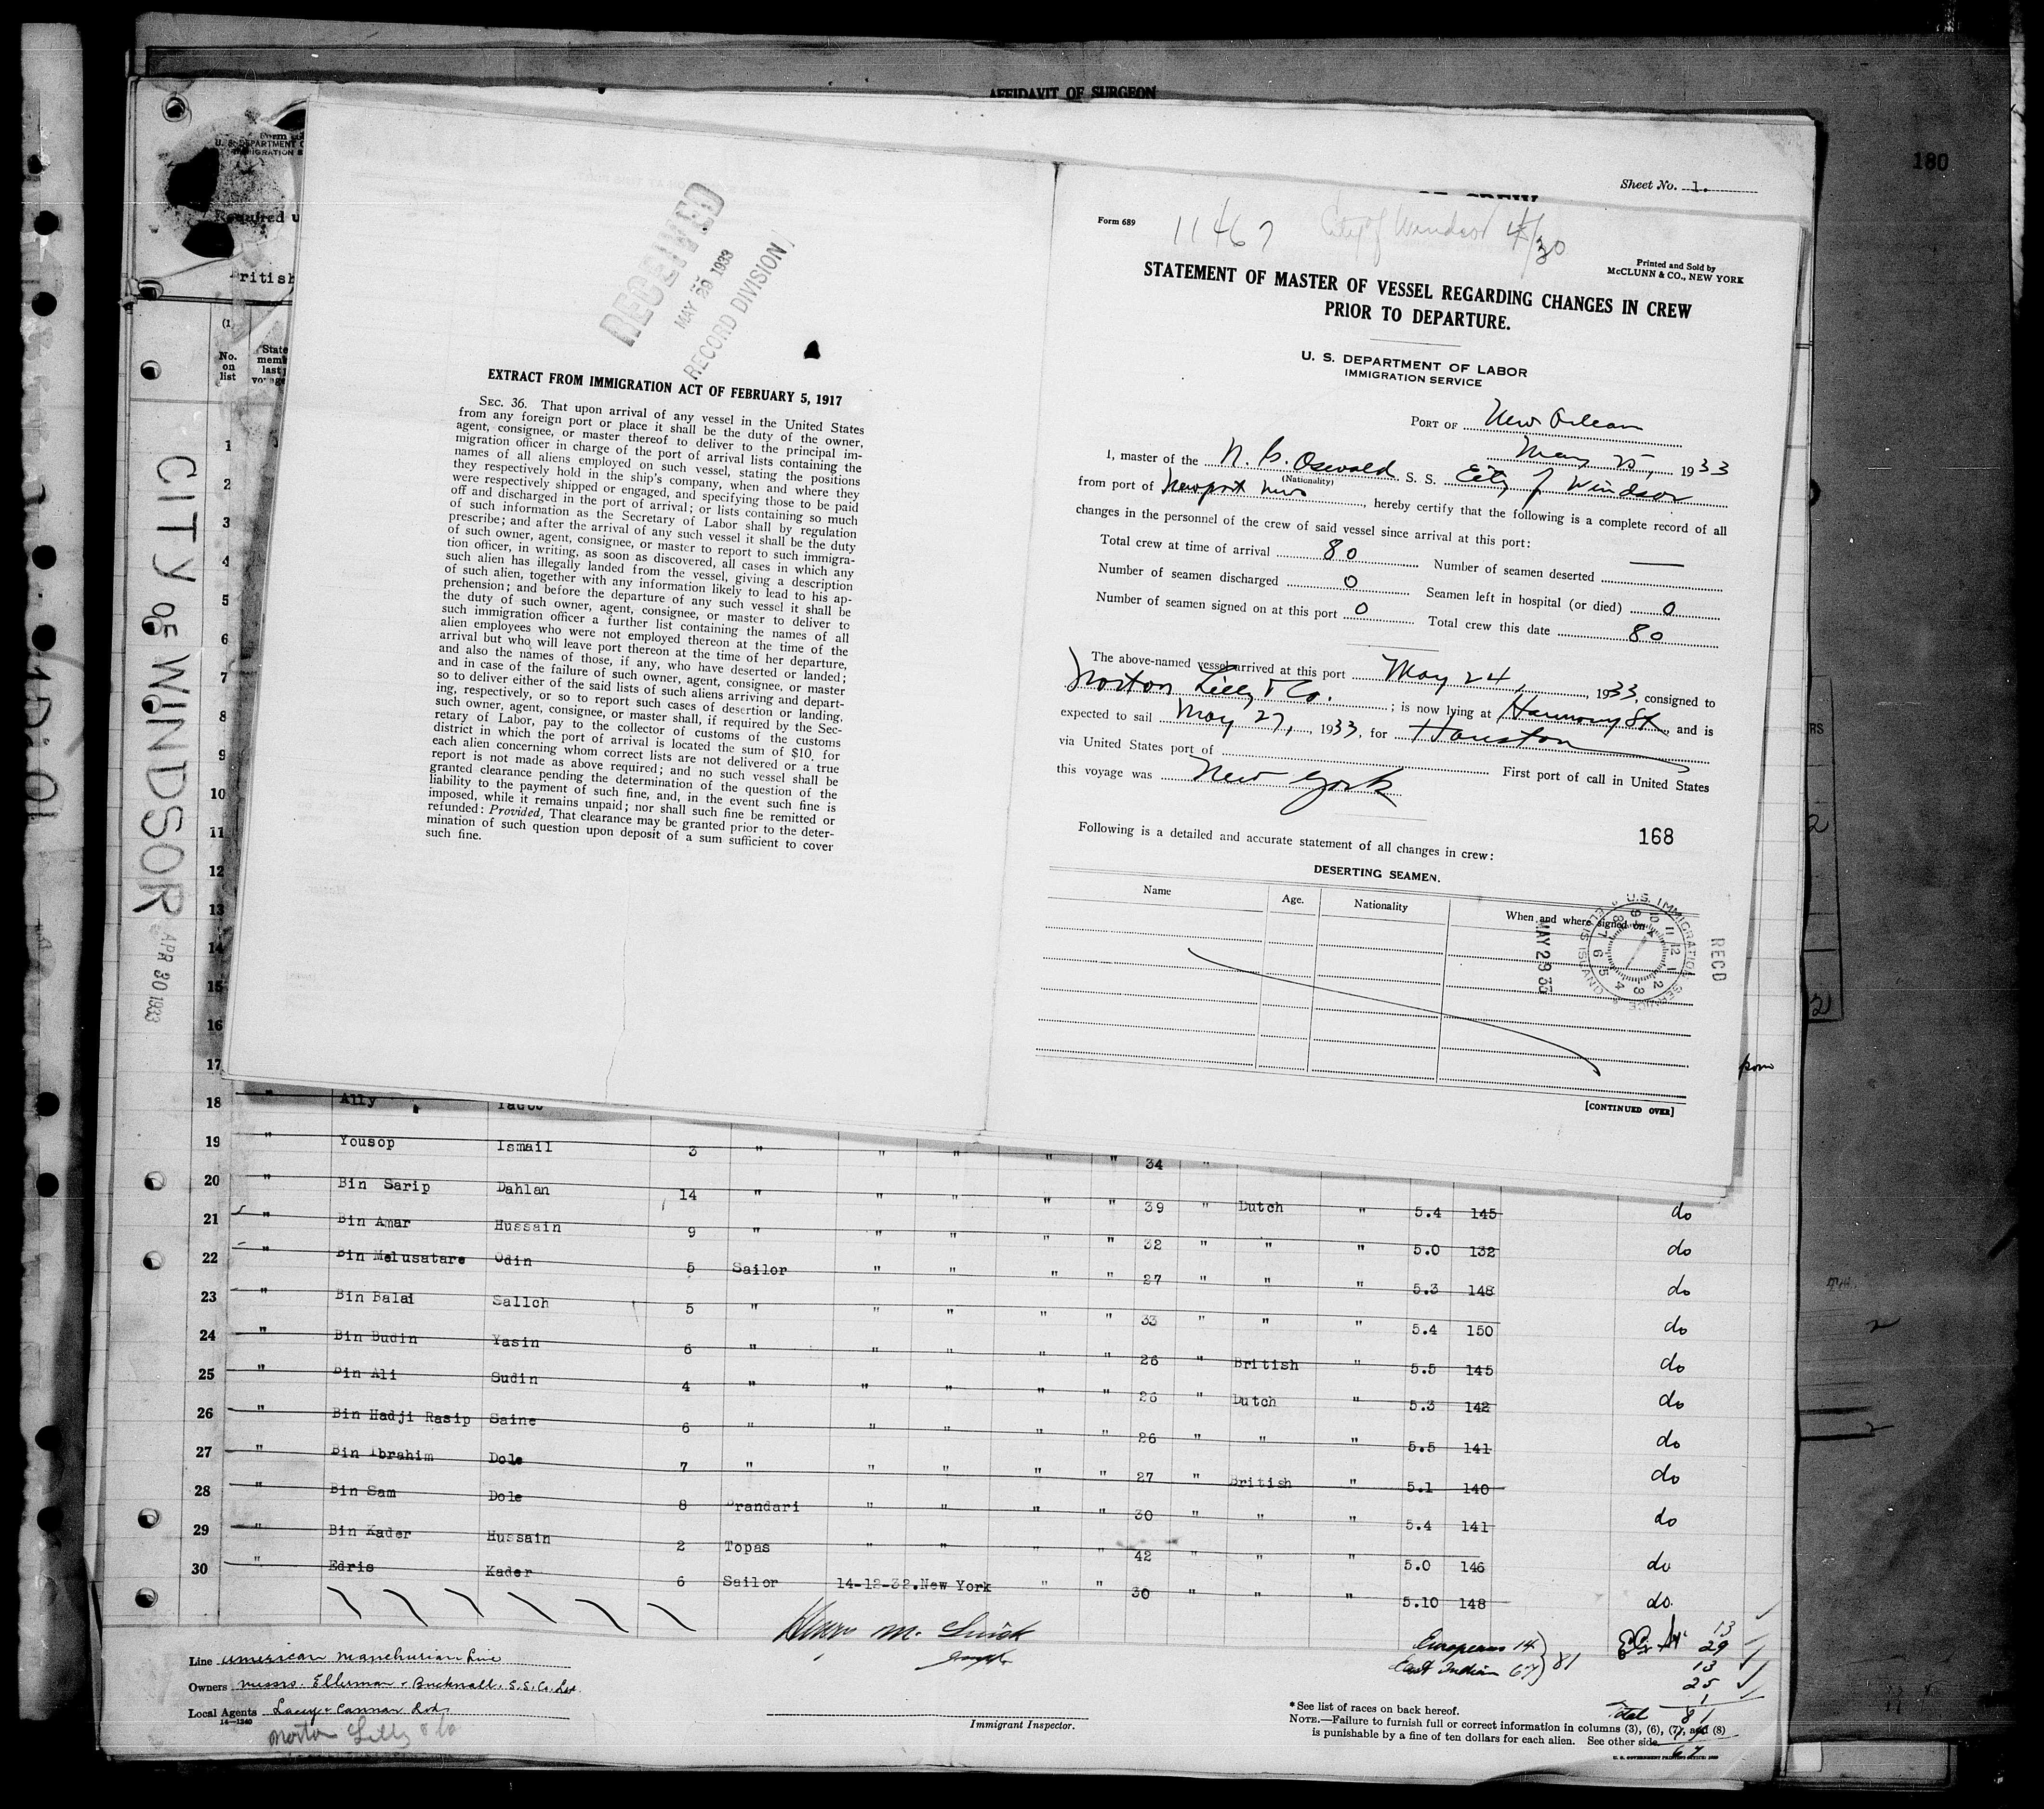 AFFIDAVIT OF SURGEON
180
Sheet No. 1.
U. S. DEPARTMENT
IMMIGRATION S
Required u
British
(1)
No. on list
State
CITY OF WINDSOR
APR 30 1933
RECEIVED
MAY 29 1933
RECORD DIVISION
EXTRACT FROM IMMIGRATION ACT OF FEBRUARY 5, 1917
SEC. 36. That upon arrival of any vessel in the United States
from any foreign port or place it shall be the duty of the owner,
agent, consignee, or master thereof to deliver to the principal im-
migration officer in charge of the port of arrival lists containing the
names of all aliens employed on such vessel, stating the positions
they respectively hold in the ship's company, when and where they
were respectively shipped or engaged, and specifying those to be paid
off and discharged in the port of arrival; or lists containing so much
of such information as the Secretary of Labor shall by regulation
prescribe; and after the arrival of any such vessel it shall be the duty
of such owner, agent, consignee, or master to report to such immigra-
tion officer, in writing, as soon as discovered, all cases in which any
such alien has illegally landed from the vessel, giving a description
of such alien, together with any information likely to lead to his ap-
prehension; and before the departure of any such vessel it shall be
the duty of such owner, agent, consignee, or master to deliver to
such immigration officer a further list containing the names of all
alien employees who were not employed thereon at the time of the
arrival but who will leave port thereon at the time of her departure,
and also the names of those, if any, who have deserted or landed;
and in case of the failure of such owner, agent, consignee, or master
so to deliver either of the said lists of such aliens arriving and depart-
ing, respectively, or so to report such cases of desertion or landing,
such owner, agent, consignee, or master shall, if required by the Sec-
retary of Labor, pay to the collector of customs of the customs
district in which the port of arrival is located the sum of $10, for
each alien concerning whom correct lists are not delivered or a true
report is not made as above required; and no such vessel shall be
granted clearance pending the determination of the question of the
liability to the payment of such fine, and, in the event such fine is
imposed, while it remains unpaid; nor shall such fine be remitted or
refunded: Provided, That clearance may be granted prior to the deter-
mination of such question upon deposit of a sum sufficient to cover
such fine.
Form 689
11467 City of Windsor 4/30
Printed and Sold by
McCLUNN & CO., NEW YORK
STATEMENT OF MASTER OF VESSEL REGARDING CHANGES IN CREW
PRIOR TO DEPARTURE.
U. S. DEPARTMENT OF LABOR
IMMIGRATION SERVICE
PORT OF New Orleans
May 25, 1933
I, master of the N. G. Oswald S. S. City of Windsor
(Nationality)
from port of Newport News, hereby certify that the following is a complete record of all
changes in the personnel of the crew of said vessel since arrival at this port:
Total crew at time of arrival 80 Number of seamen deserted —
Number of seamen discharged 0 Seamen left in hospital (or died) 0
Number of seamen signed on at this port 0 Total crew this date 80
The above-named vessel arrived at this port May 24, 1933, consigned to
Norton Lilly & Co.; is now lying at Harmony St., and is
expected to sail May 27, 1933, for Houston
via United States port of First port of call in United States
this voyage was New York
168
Following is a detailed and accurate statement of all changes in crew:
DESERTING SEAMEN.
Name Age. Nationality When and where signed on
U.S. IMMIGRATION SERVICE ELLIS ISLAND
RECD
MAY 29 33
[CONTINUED OVER]
1
2
3
4
5
6
7
8
9
10
11
12
13
14
15
16
17
18 " Ally Yacob
19 " Yousop Ismail 3 " " " " " 34 "
20 " Bin Sarip Dahlan 14 " " " " " 39 " Dutch " 5.4 145 do
21 " Bin Amar Hussain 9 " " " " " 32 " " " 5.0 132 do
22 " Bin Melusatare Odin 5 Sailor " " " " 27 " " " 5.3 148 do
23 " Bin Balai Salloh 5 " " " " " 33 " " " 5.4 150 do
24 " Bin Budin Yasin 6 " " " " " 26 " British " 5.5 145 do
25 " Bin Ali Sudin 4 " " " " " 26 " Dutch " 5.3 142 do
26 " Bin Hadji Rasip Saine 6 " " " " " 26 " " " 5.5 141 do
27 " Bin Ibrahim Dole 7 " " " " " 27 " British " 5.1 140 do
28 " Bin Sam Dole 8 Brandari " " " " 30 " " " 5.4 141 do
29 " Bin Kader Hussain 2 Topas " " " " 42 " " " 5.0 146 do
30 " Edris Kader 6 Sailor 14-12-32. New York " " 30 " " " 5.10 148 do.
Europeans 14
East Indian 67 } 81
13
29
13
25
1
Total 81
67
Line American Manchurian Line
Owners Messrs. Ellerman & Bucknall. S.S. Co. Ltd.
Local Agents
14—1240
Norton Lilly & Co
Immigrant Inspector.
*See list of races on back hereof.
NOTE.—Failure to furnish full or correct information in columns (3), (6), (7), and (8)
is punishable by a fine of ten dollars for each alien. See other side.
U. S. GOVERNMENT PRINTING OFFICE